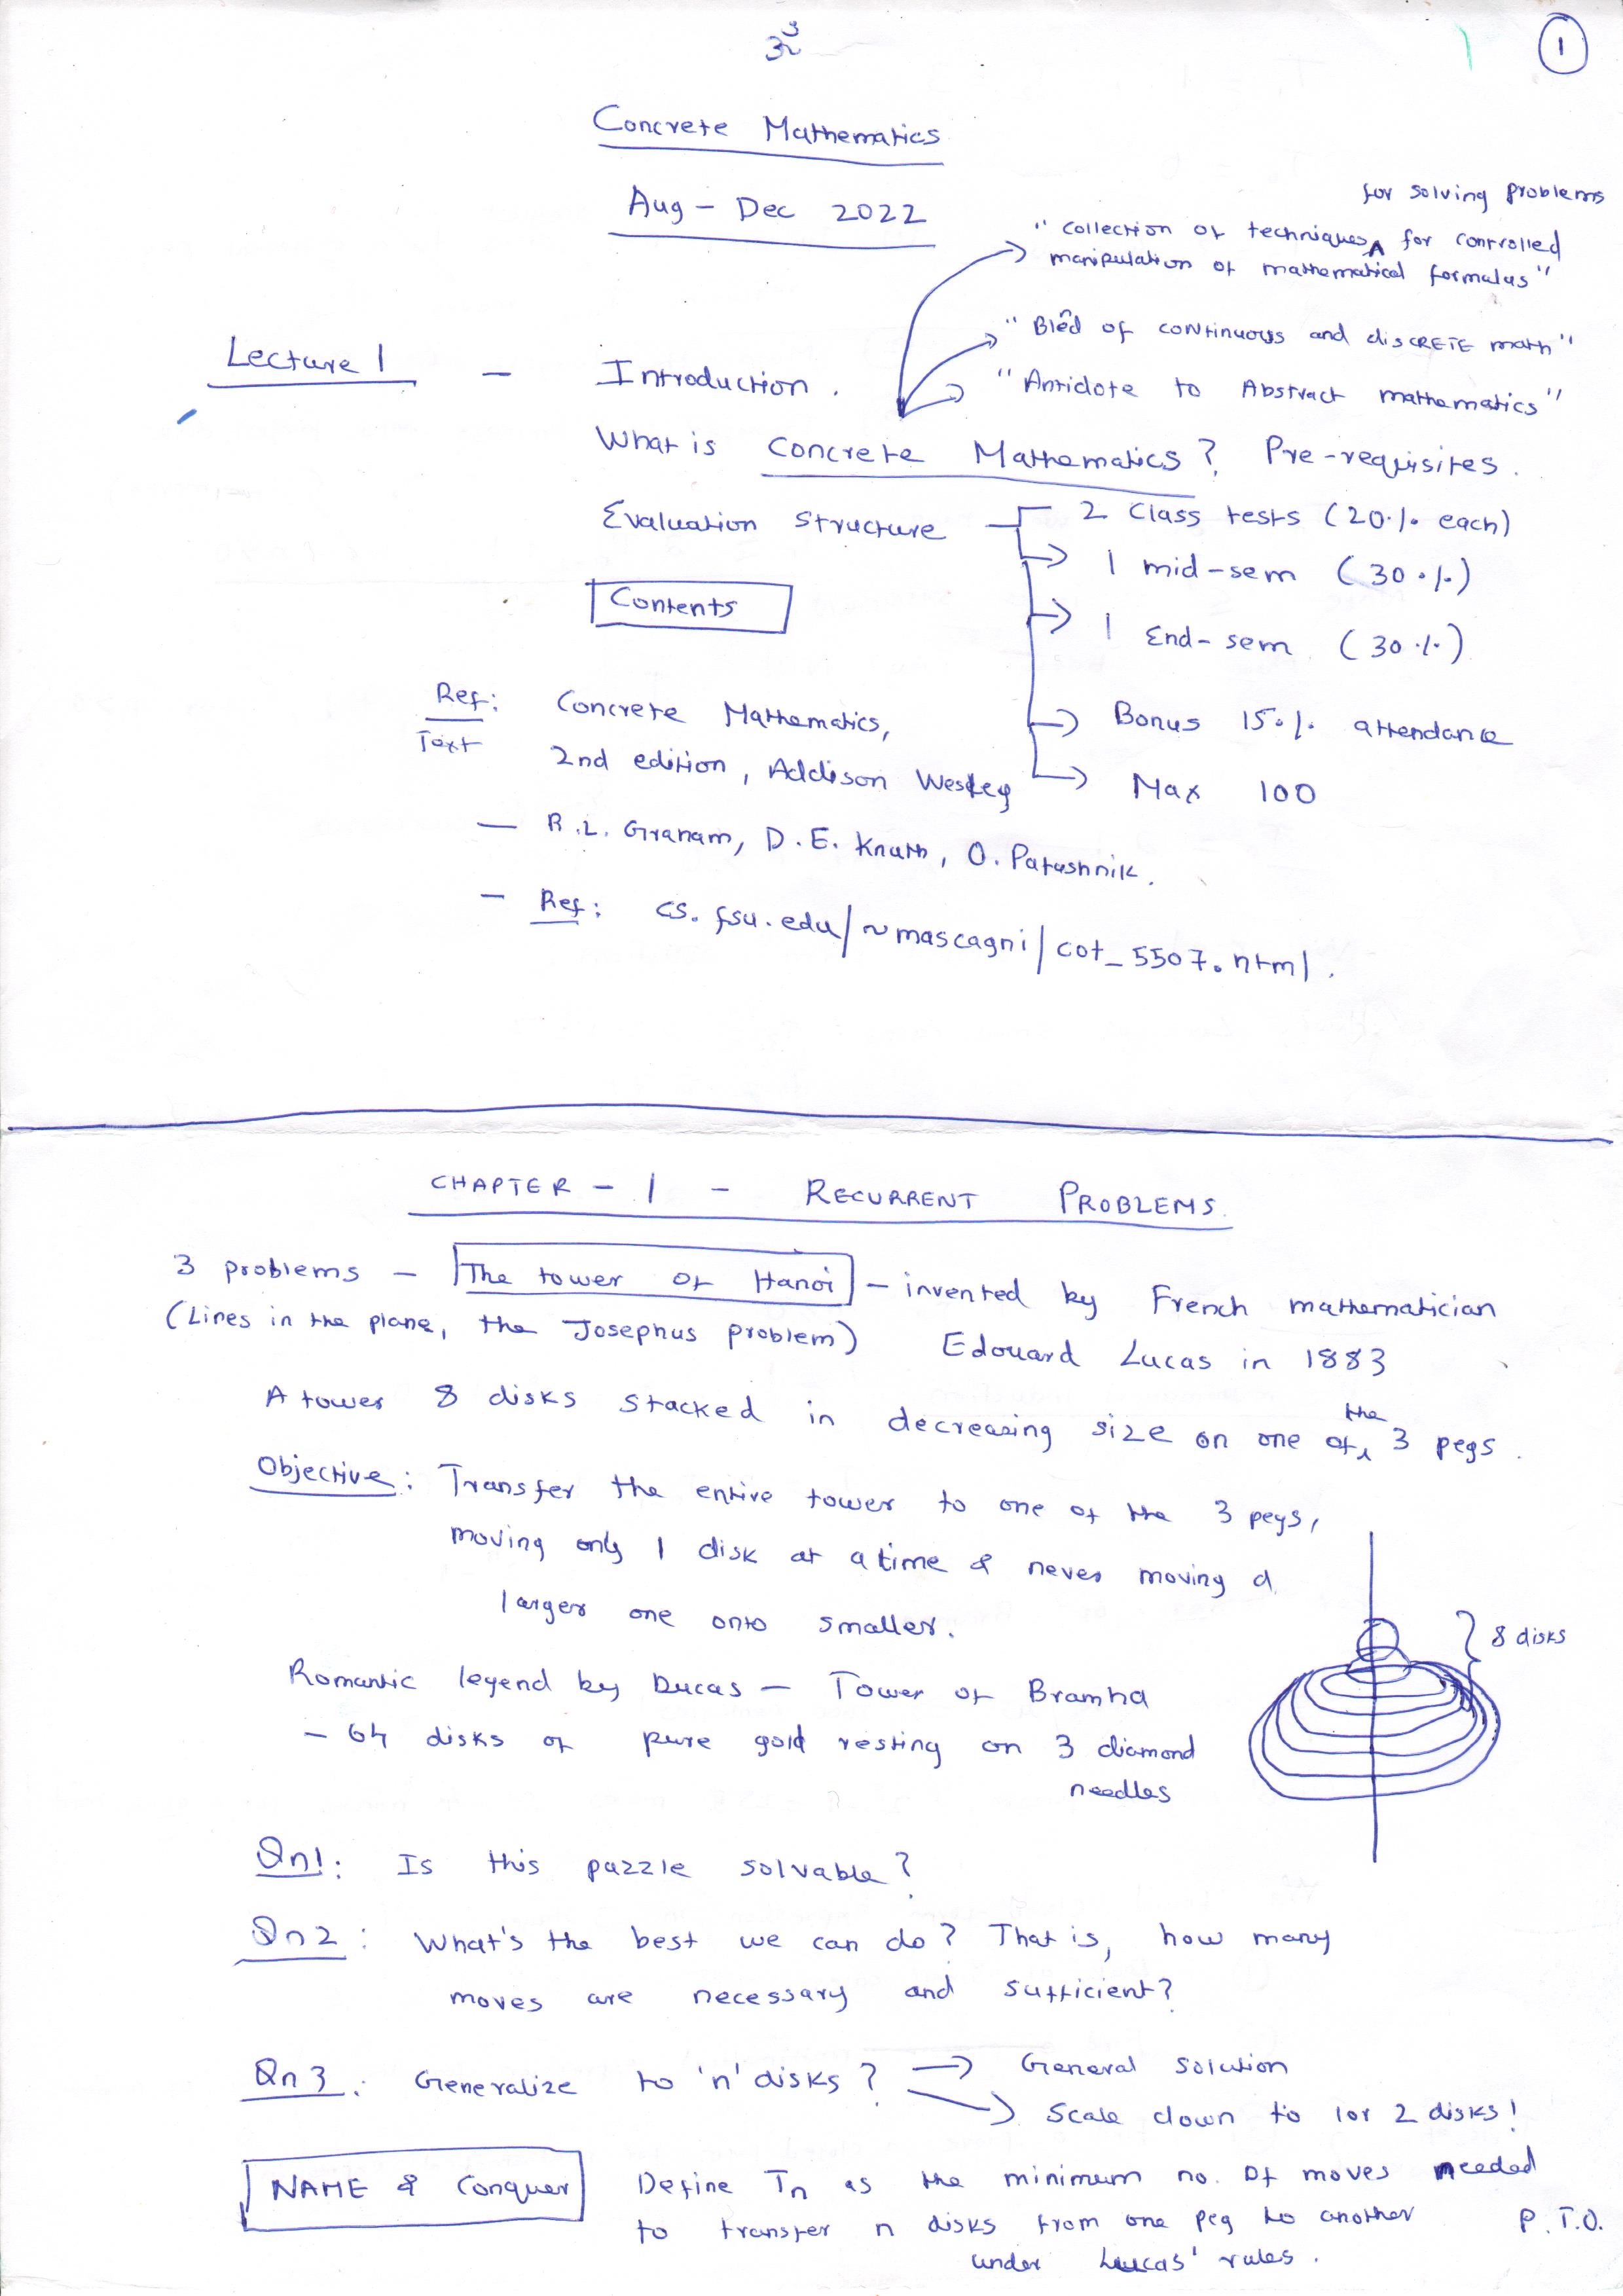 1
Concrete Mathematics
Aug - Dec 2022
for solving problems
"Collection of techniques ^ for controlled
manipulation of mathematical formulas"
"Blend of CONtinuous and disCRETE math"
"Antidote to Abstract mathematics"
Lecture 1 - Introduction.
What is Concrete Mathematics? Pre-requisites.
Evaluation structure
2 Class tests (20% each)
1 mid-sem (30%)
1 End-sem (30%)
Bonus 15% attendance
Max 100
Contents
Ref: Concrete Mathematics,
Text 2nd edition, Addison Wesley
- R.L. Graham, D.E. Knuth, O. Patashnik.
- Ref: cs.fsu.edu/~mascagni/cot_5507.html.
CHAPTER - 1 - RECURRENT PROBLEMS.
3 problems - The tower of Hanoi - invented by French mathematician
(Lines in the plane, the Josephus problem) Edouard Lucas in 1883
A tower 8 disks stacked in decreasing size on one of the 3 pegs.
Objective: Transfer the entire tower to one of the 3 pegs,
moving only 1 disk at a time & never moving a
larger one onto smaller.
8 disks
Romantic legend by Lucas - Tower of Bramha
- 64 disks of pure gold resting on 3 diamond
needles
Qn1: Is this puzzle solvable?
Qn2: What's the best we can do? That is, how many
moves are necessary and sufficient?
Qn3: Generalize to 'n' disks? → General solution
→ Scale down to 1 or 2 disks!
NAME & Conquer
Define Tn as the minimum no. Of moves needed
to transfer n disks from one peg to another
under Lucas' rules.
P.T.O.